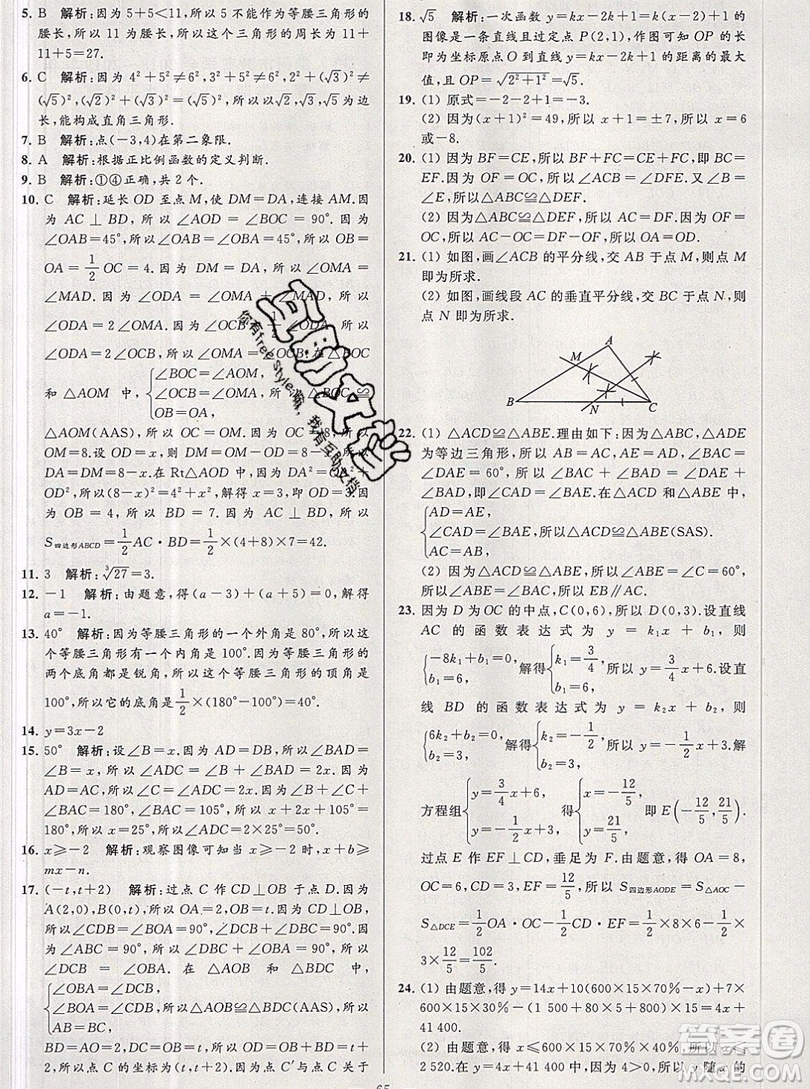 5. B 解析:因为 5+5<11,所以 5 不能作为等腰三角形的
腰长,所以 11 为腰长,所以这个三角形的周长为 11+
11+5=27.
6. C 解析:因为 4²+5²≠6²,3²+5²≠6²,所以 6²+
(√5)²≠(√5)²,
长,能构成直角三角形.
7. B 解析:点(-3,4)在第二象限.
8. A 解析:根据正比例函数的定义判断.
9. B 解析:①④正确,共 2 个.
10. C 解析:延长 OD 至点 M,使 DM=DA,连接 AM.因
为 AC⊥BD,所以∠AOD=∠BOC=90°.因为
∠OAB=45°,所以∠OBA=45°,所以 OB=
OA=1/2 OC=4.因为 DM=DA,所以∠OMA=
∠MAD.因为∠ODA=∠OMA+∠MAD,所以
∠ODA=2∠OMA.因为∠ODA=2∠OCB,所以
2∠OCB=2∠OMA,所以∠OCB=∠OMA.在△OCB
和△AOM 中,{∠BOC=∠AOM, ∠OCB=∠OMA, OB=OA, 所以△OCB≌
△AOM(AAS),所以 OC=OM.因为 OC=8,所以
OM=8.设 OD=x,则 DA=8-x.在 Rt△AOD 中,因为 DA²=OA²+
OD²,所以(8-x)²=4²+x²,解得 x=3,所以
OD=3,所以 BD=7.因为 AC⊥BD,所以
S四边形ABCD=1/2 AC·BD=1/2×(4+8)×7=42.
11. 3 解析:∛27=3.
12. -1 解析:由题意,得(a-3)+(a+5)=0,解得
a=-1.
13. 40° 解析:因为等腰三角形的一个外角是 80°,所以这
个等腰三角形有一个内角是 100°.因为等腰三角形的
两个底角都是锐角,所以这个等腰三角形的顶角是
100°,所以它的底角是 1/2×(180°-100°)=40°.
14. y=3x-2
15. 50° 解析:设∠B=x.因为 AD=DB,所以∠BAD=
∠B=x,所以∠ADC=∠B+∠BAD=2x.因为
AC=AD,所以∠C=∠ADC=2x.因为∠B+∠C+
∠BAC=180°,∠BAC=105°,所以 x+2x+105°=
180°,所以 x=25°,所以∠ADC=2×25°=50°.
16. x≥-2 解析:观察图像可知当 x≥-2 时,x+b≥
17. (-t,t+2) 解析:过点 C 作 CD⊥OB 于点 D.因为
A(2,0),B(0,t),所以 OA=2,OB=t.因为 CD⊥OB,
所以∠CDB=90°,所以∠DCB+∠DBC=90°.因
为∠ABC=90°,所以∠ABO+∠DBC=90°,所以
∠DCB=∠OBA.在△AOB 和△BDC 中,
{∠DCB=∠OBA, ∠BDC=∠AOB, BC=AB, 所以△AOB≌△BDC(AAS),所以
BD=AO=2,CD=OB=t,所以 OD=OB+BD=t+
2,所以点 C 的坐标为(t,t+2).因为点 C′与点 C 关于
18. √5 解析:一次函数 y=kx-2k+1(k≠0)的
图像是一条直线且过定点 P(2,1),作图可知 OP 的长
即为坐标原点 O 到直线 y=kx-2k+1 的距离的最大
值,且 OP=√(2²+1²)=√5.
19. (1) 原式=-2-2+1=-3.
(2) 因为(x+1)²=49,所以 x+1=±7,所以 x=6
或-8.
20. (1) 因为 BF=CE,所以 BF+CF=CE+CF,即 BC=
EF.因为 AC⊥BC,DF⊥EF,∠B=
∠E,所以△ABC≌△DEF.
(2) 因为△ABC≌△DEF,所以 AC=DF.因为 OF=
OC,所以 AC-OC=DF-OF,所以 OA=OD.
21. (1) 如图,画∠ACB 的平分线,交 AB 于点 M,点 M
即为所求.
(2) 如图,画线段 AC 的垂直平分线,交 BC 于点 N,则
点 N 即为所求.
A
M
B N C
22. (1) △ACD≌△ABE.理由如下:因为△ABC,△ADE
为等边三角形,所以 AB=AC,AE=AD,∠BAC=
∠DAE=60°,所以∠BAC+∠CAE=∠DAE+
∠CAE,即∠CAD=∠BAE.在△ACD 和△ABE 中,
{AD=AE, ∠CAD=∠BAE, AC=AB, 所以△ACD≌△ABE(SAS).
(2) 因为△ACD≌△ABE,所以∠ABE=∠C=60°,
所以∠BAC=∠ABE,所以 EB∥AC.
23. 因为 D 为 OC 的中点,C(0,6),所以 D(0,3).设直线
AC 的函数表达式为 y=k₁x+b₁,则
{-8k₁+b₁=0, b₁=6, 解得{k₁=3/4, b₁=6, 所以 y=3/4x+6.设直
线 BD 的函数表达式为 y=k₂x+b₂,则
{6k₂+b₂=0, b₂=3, 解得{k₂=-1/2, b₂=3, 所以 y=-1/2x+3.解
方程组{y=3/4x+6, y=-1/2x+3, 得{x=-12/5, y=21/5, 即 E(-12/5,21/5).
过点 E 作 EF⊥OC,垂足为 F.由题意,得 OA=8,
OC=6,CD=3,EF=12/5,所以 S四边形AODE=S△AOC
-S△DCE=1/2 OA·OC-1/2 CD·EF=1/2×8×6-1/2×
3×12/5=102/5.
24. (1) 由题意,得 y=14x+10(600×15×70%-x)+7
×600×15×30%=4x+94 500,所以
41 400.
(2) 由题意,得 x≤600×15×
2 520.因为 4>0,所以 y 随 x 的
65
互助文档
你有free style嘛,
我有互助文档
答案圈
MXQE.COM